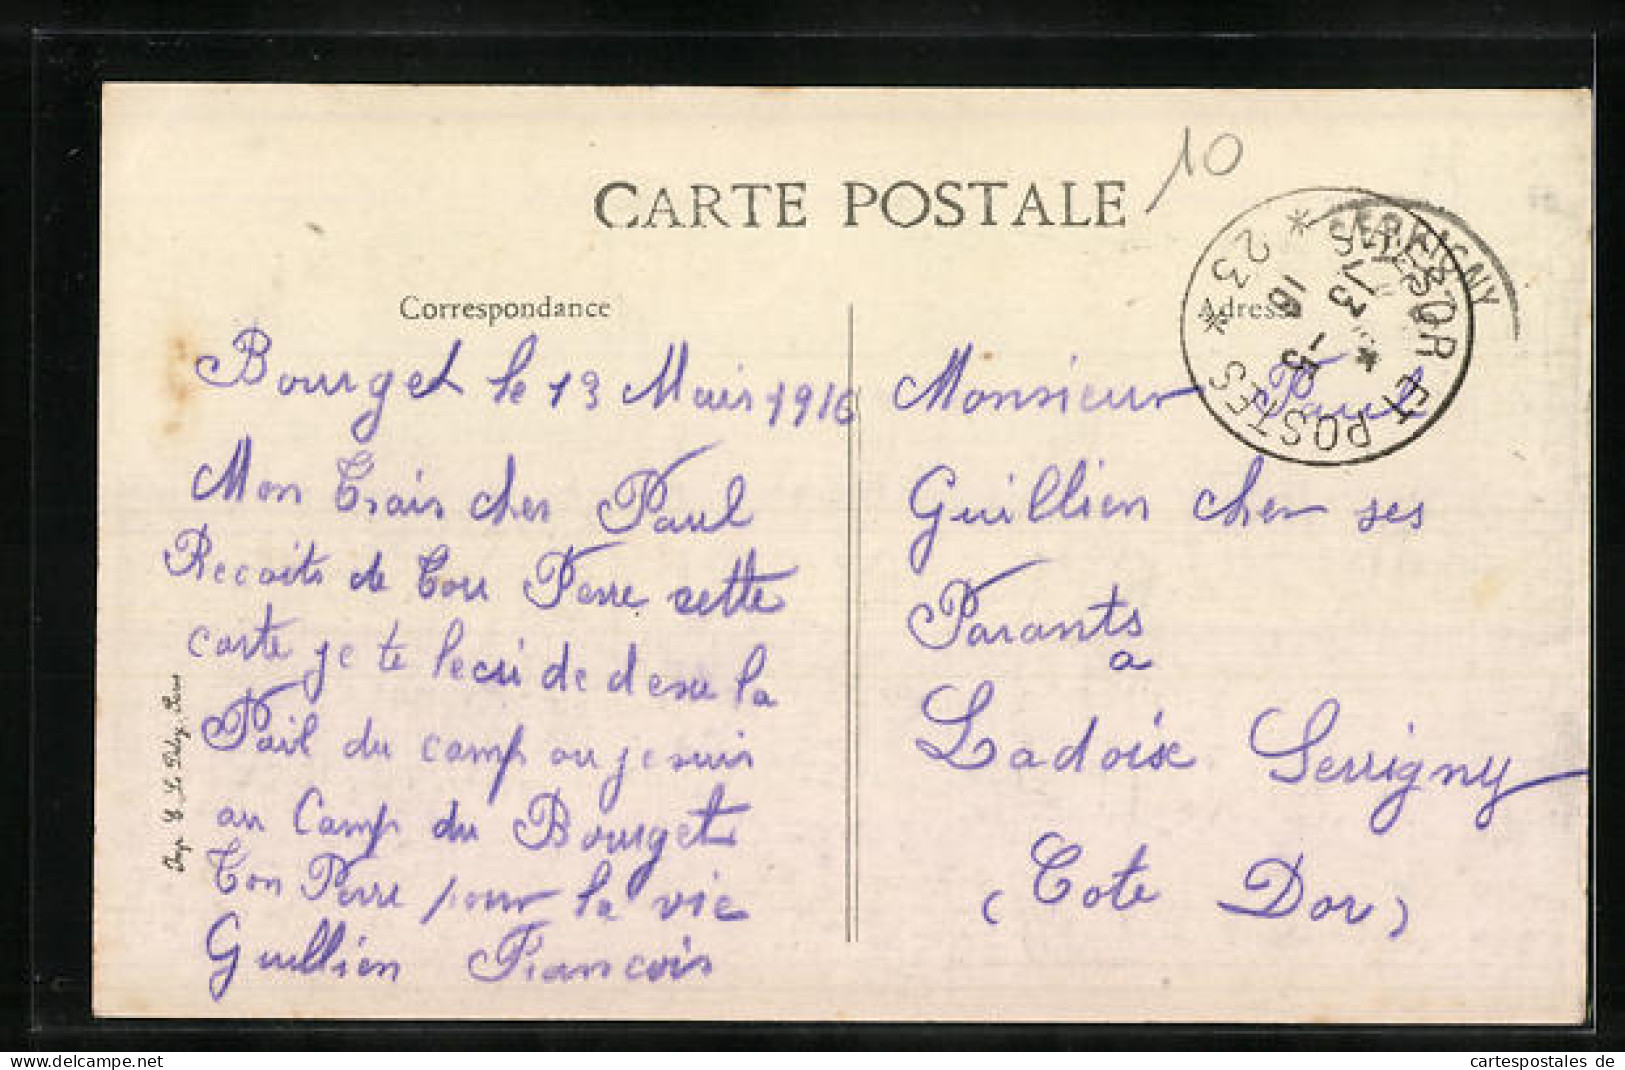 10
CARTE POSTALE
Correspondance
Adresse
TRESOR ET POSTES
* 23 *
13 -5
16
SERRIGNY
Bourget le 13 Mais 1916
Mon Trais cher Paul
Recoits de Ton Perre cette
carte je te lecri de desu la
Pail du camp ou je suis
au Camp du Bourget
Ton Perre pour la vie
Guillien Francois
Monsieur Paul
Guillien cher ses
Parants
a
Ladoix Serrigny
(Cote Dor)
cartespostales de